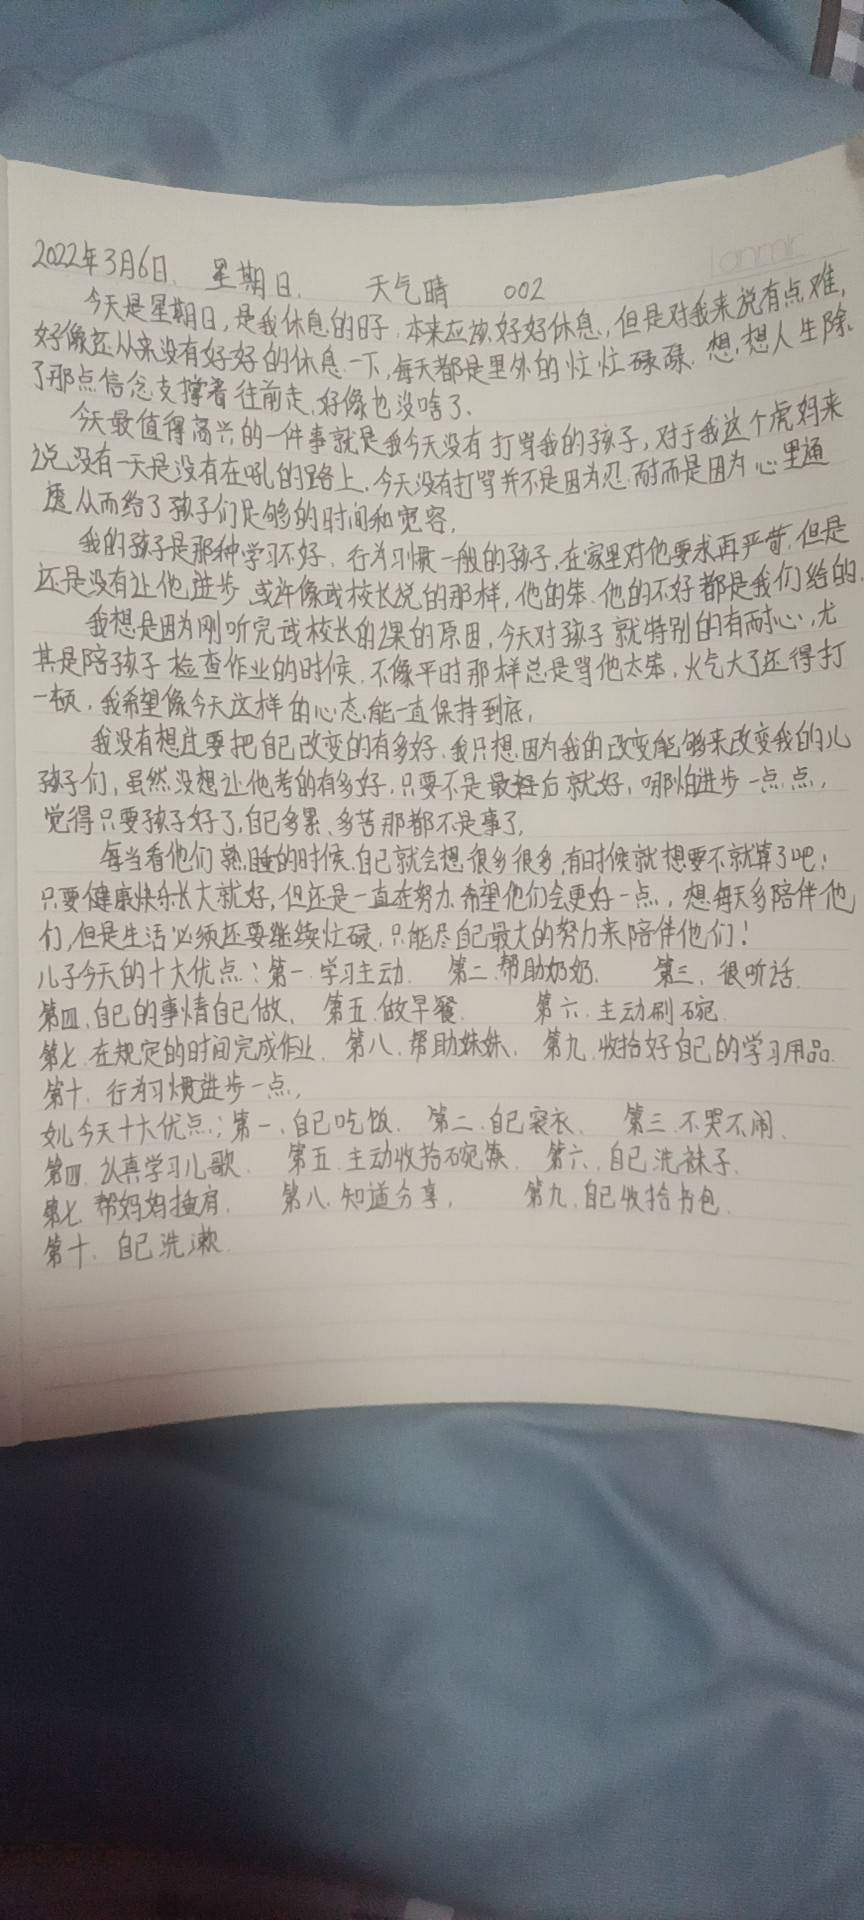 lanmr
2022年3月6日. 星期日. 天气晴 002
今天是星期日,是我休息的日子.本来应该好好休息,但是对我来说有点难,
好像还从来没有好好的休息一下,每天都是里外的忙忙碌碌.想,想人生除
了那点信念支撑着往前走,好像也没啥了.
今天最值得高兴的一件事就是我今天没有打骂我的孩子,对于我这个虎妈来
说,没有一天是没有在吼的路上.今天没有打骂并不是因为忍耐而是因为心里通
透从而给了孩子们足够的时间和宽容.
我的孩子是那种学习不好.行为习惯一般的孩子,在家里对他要求再严苛.但是
还是没有让他进步,或许像或校长说的那样,他的笨.他的不好都是我们给的.
我想是因为刚听完或校长的课的原因,今天对孩子就特别的有耐心,尤
其是陪孩子检查作业的时候.不像平时那样总是骂他太笨,火气大了还得打
一顿.我希望像今天这样的心态能一直保持到底,
我没有想过要把自己改变的有多好.我只想因为我的改变能够来改变我的儿
孩子们,虽然没想让他考的有多好.只要不是最后就好,哪怕进步一点点,
觉得只要孩子好了,自己多累、多苦那都不是事了,
每当看他们熟睡的时候.自己就会想很多很多,有时候就想要不就算了吧!
只要健康快乐长大就好,但还是一直在努力.希望他们会更好一点,想每天多陪伴他
们,但是生活必须还要继续忙碌.只能尽自己最大的努力来陪伴他们!
儿子今天的十大优点:第一.学习主动. 第二.帮助奶奶. 第三.很听话.
第四.自己的事情自己做. 第五.做早餐. 第六.主动刷碗.
第七.在规定的时间完成作业. 第八.帮助妹妹. 第九.收拾好自己的学习用品.
第十.行为习惯进步一点,
女儿今天十大优点:第一.自己吃饭. 第二.自己穿衣. 第三.不哭不闹.
第四.认真学习儿歌. 第五.主动收拾碗筷. 第六.自己洗袜子.
第七.帮妈妈捶肩. 第八.知道分享, 第九.自己收拾书包.
第十.自己洗漱.